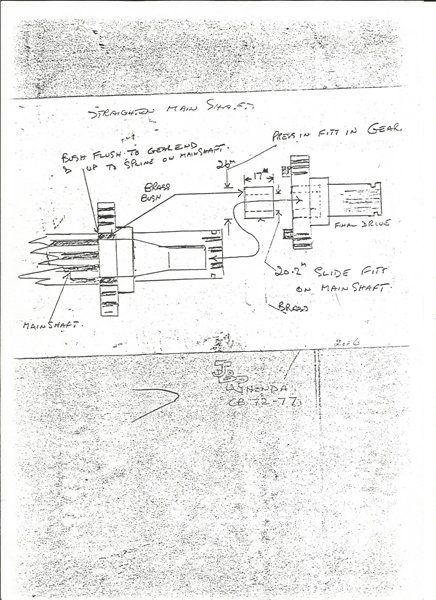 STRAIGHTEN MAIN SHAFT.
PRESS IN FITT IN GEAR.
BUSH FLUSH TO GEAR END
UP TO SPLINE ON MAINSHAFT.
17"
BRASS
BUSH
FINAL DRIVE
20.2" SLIDE FITT
ON MAINSHAFT.
BRASS
MAINSHAFT.
2 OF 6
HONDA
CB 72-77